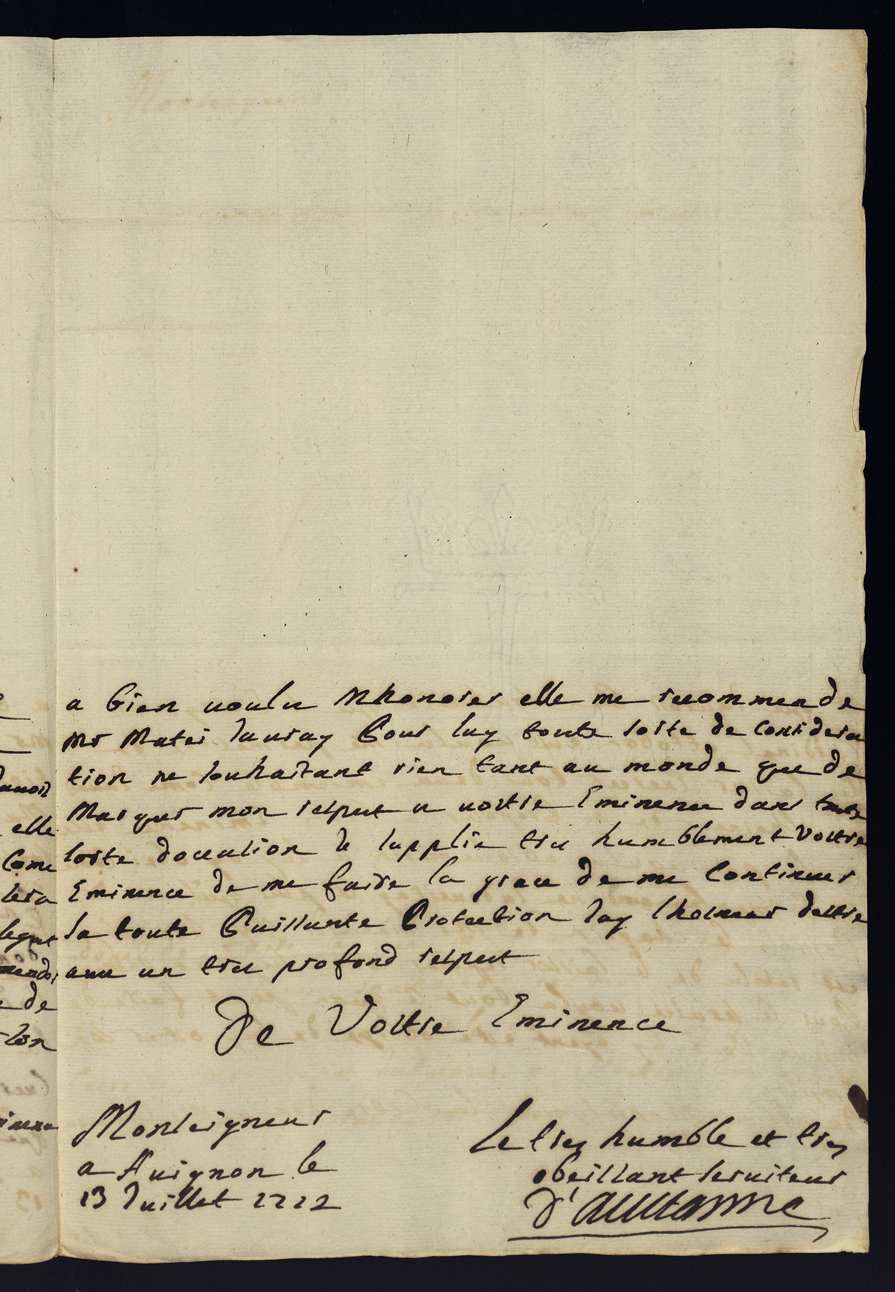 a bien voulu Mhonorer elle me recommende
Mr Matei Jauray Pour luy toute sorte de Considera
tion ne souhaitant rien tant au monde que de
Marquer mon respect a vostre Eminence dans toute
sorte docation Je supplie tres humblement Vostre
Eminence de me faire la grace de me Continuer
sa toute Puissante Protection Jay lhoneur destre
avec un tres profond respect
De Vostre Eminence
Monseigneur
a Avignon le
13 Juillet 1712
Le tres humble et tres
obeissant serviteur
D'aultanne
elle
Come
sera
de